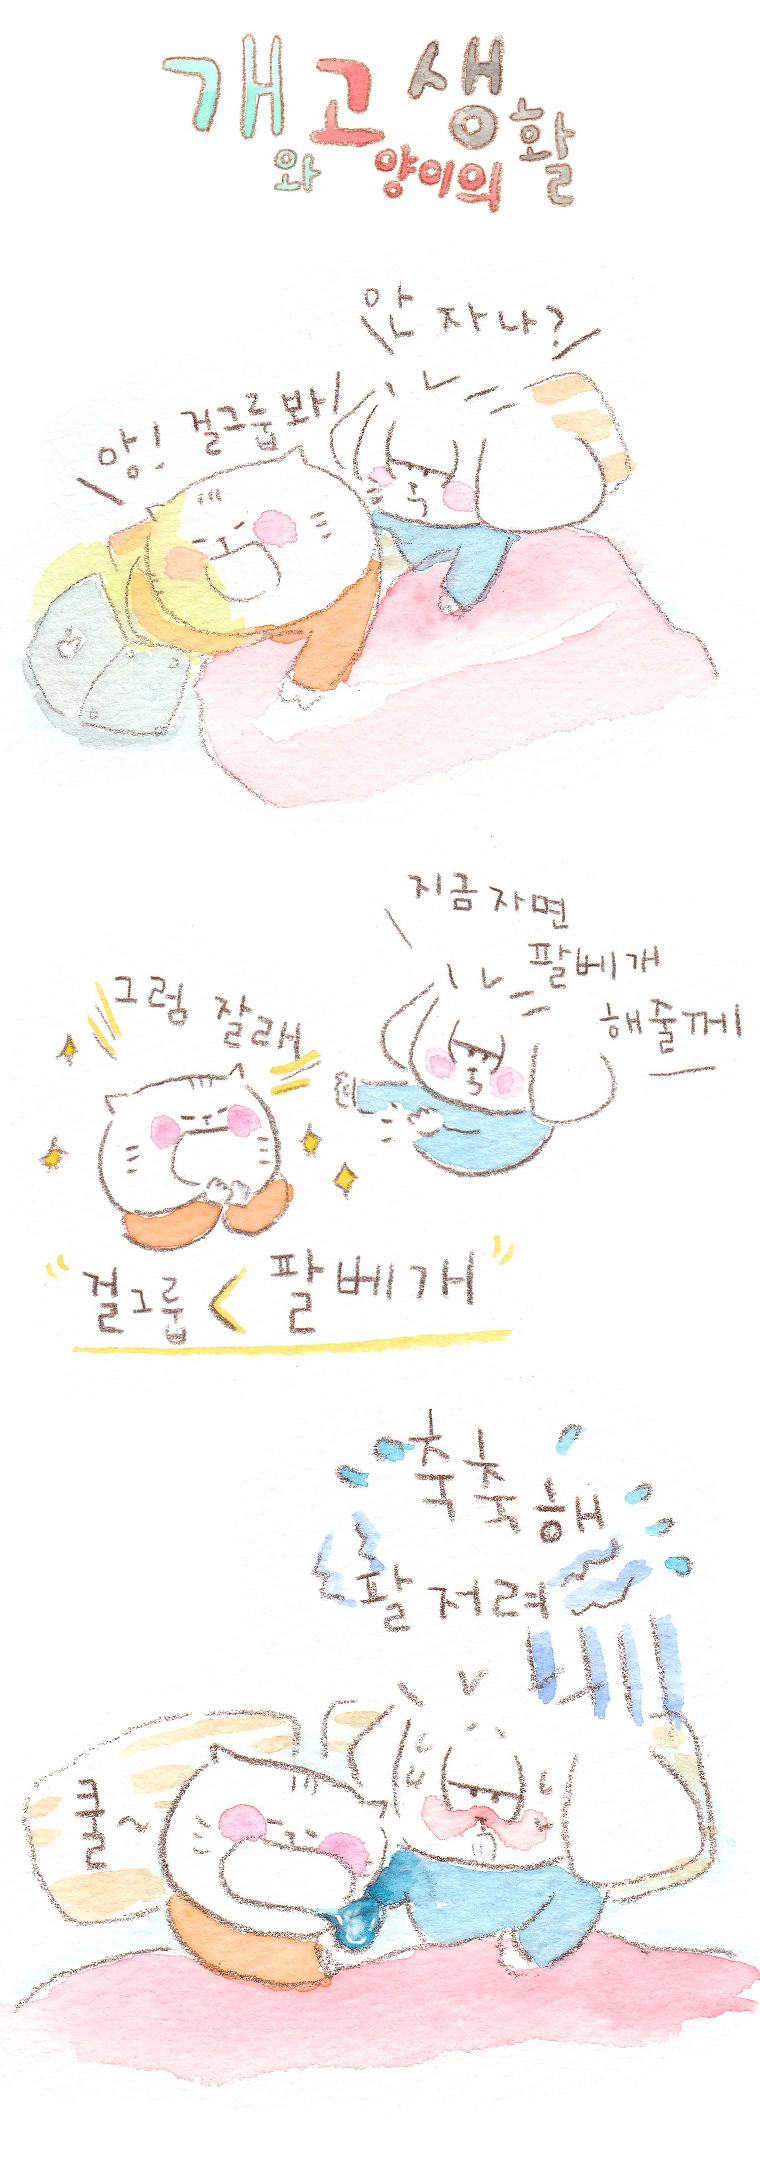 개와 고양이의 생활
안 자나?
앙! 걸그룹봐
지금 자면
팔베개
해줄께
그럼 잘래
걸그룹 < 팔베개
축축해
팔 저려
쿨~